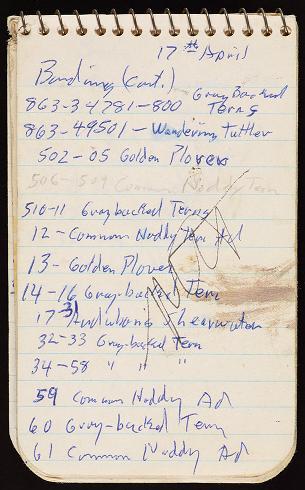 17th April
Banding (cont.)
863-34781-800 Gray Backed Terns
863-49501 - Wandering Tattler
502-05 Golden Plovers
506-509 Common Noddy Tern
510-11 Gray backed Terns
12 - Common Noddy Tern Ad
13 - Golden Plover
14-16 Gray-backed Tern
17-31 Audubons Shearwater
32-33 Gray-backed Tern
34-58 " " "
59 Common Noddy Ad
60 Gray-backed Tern
61 Common Noddy Ad